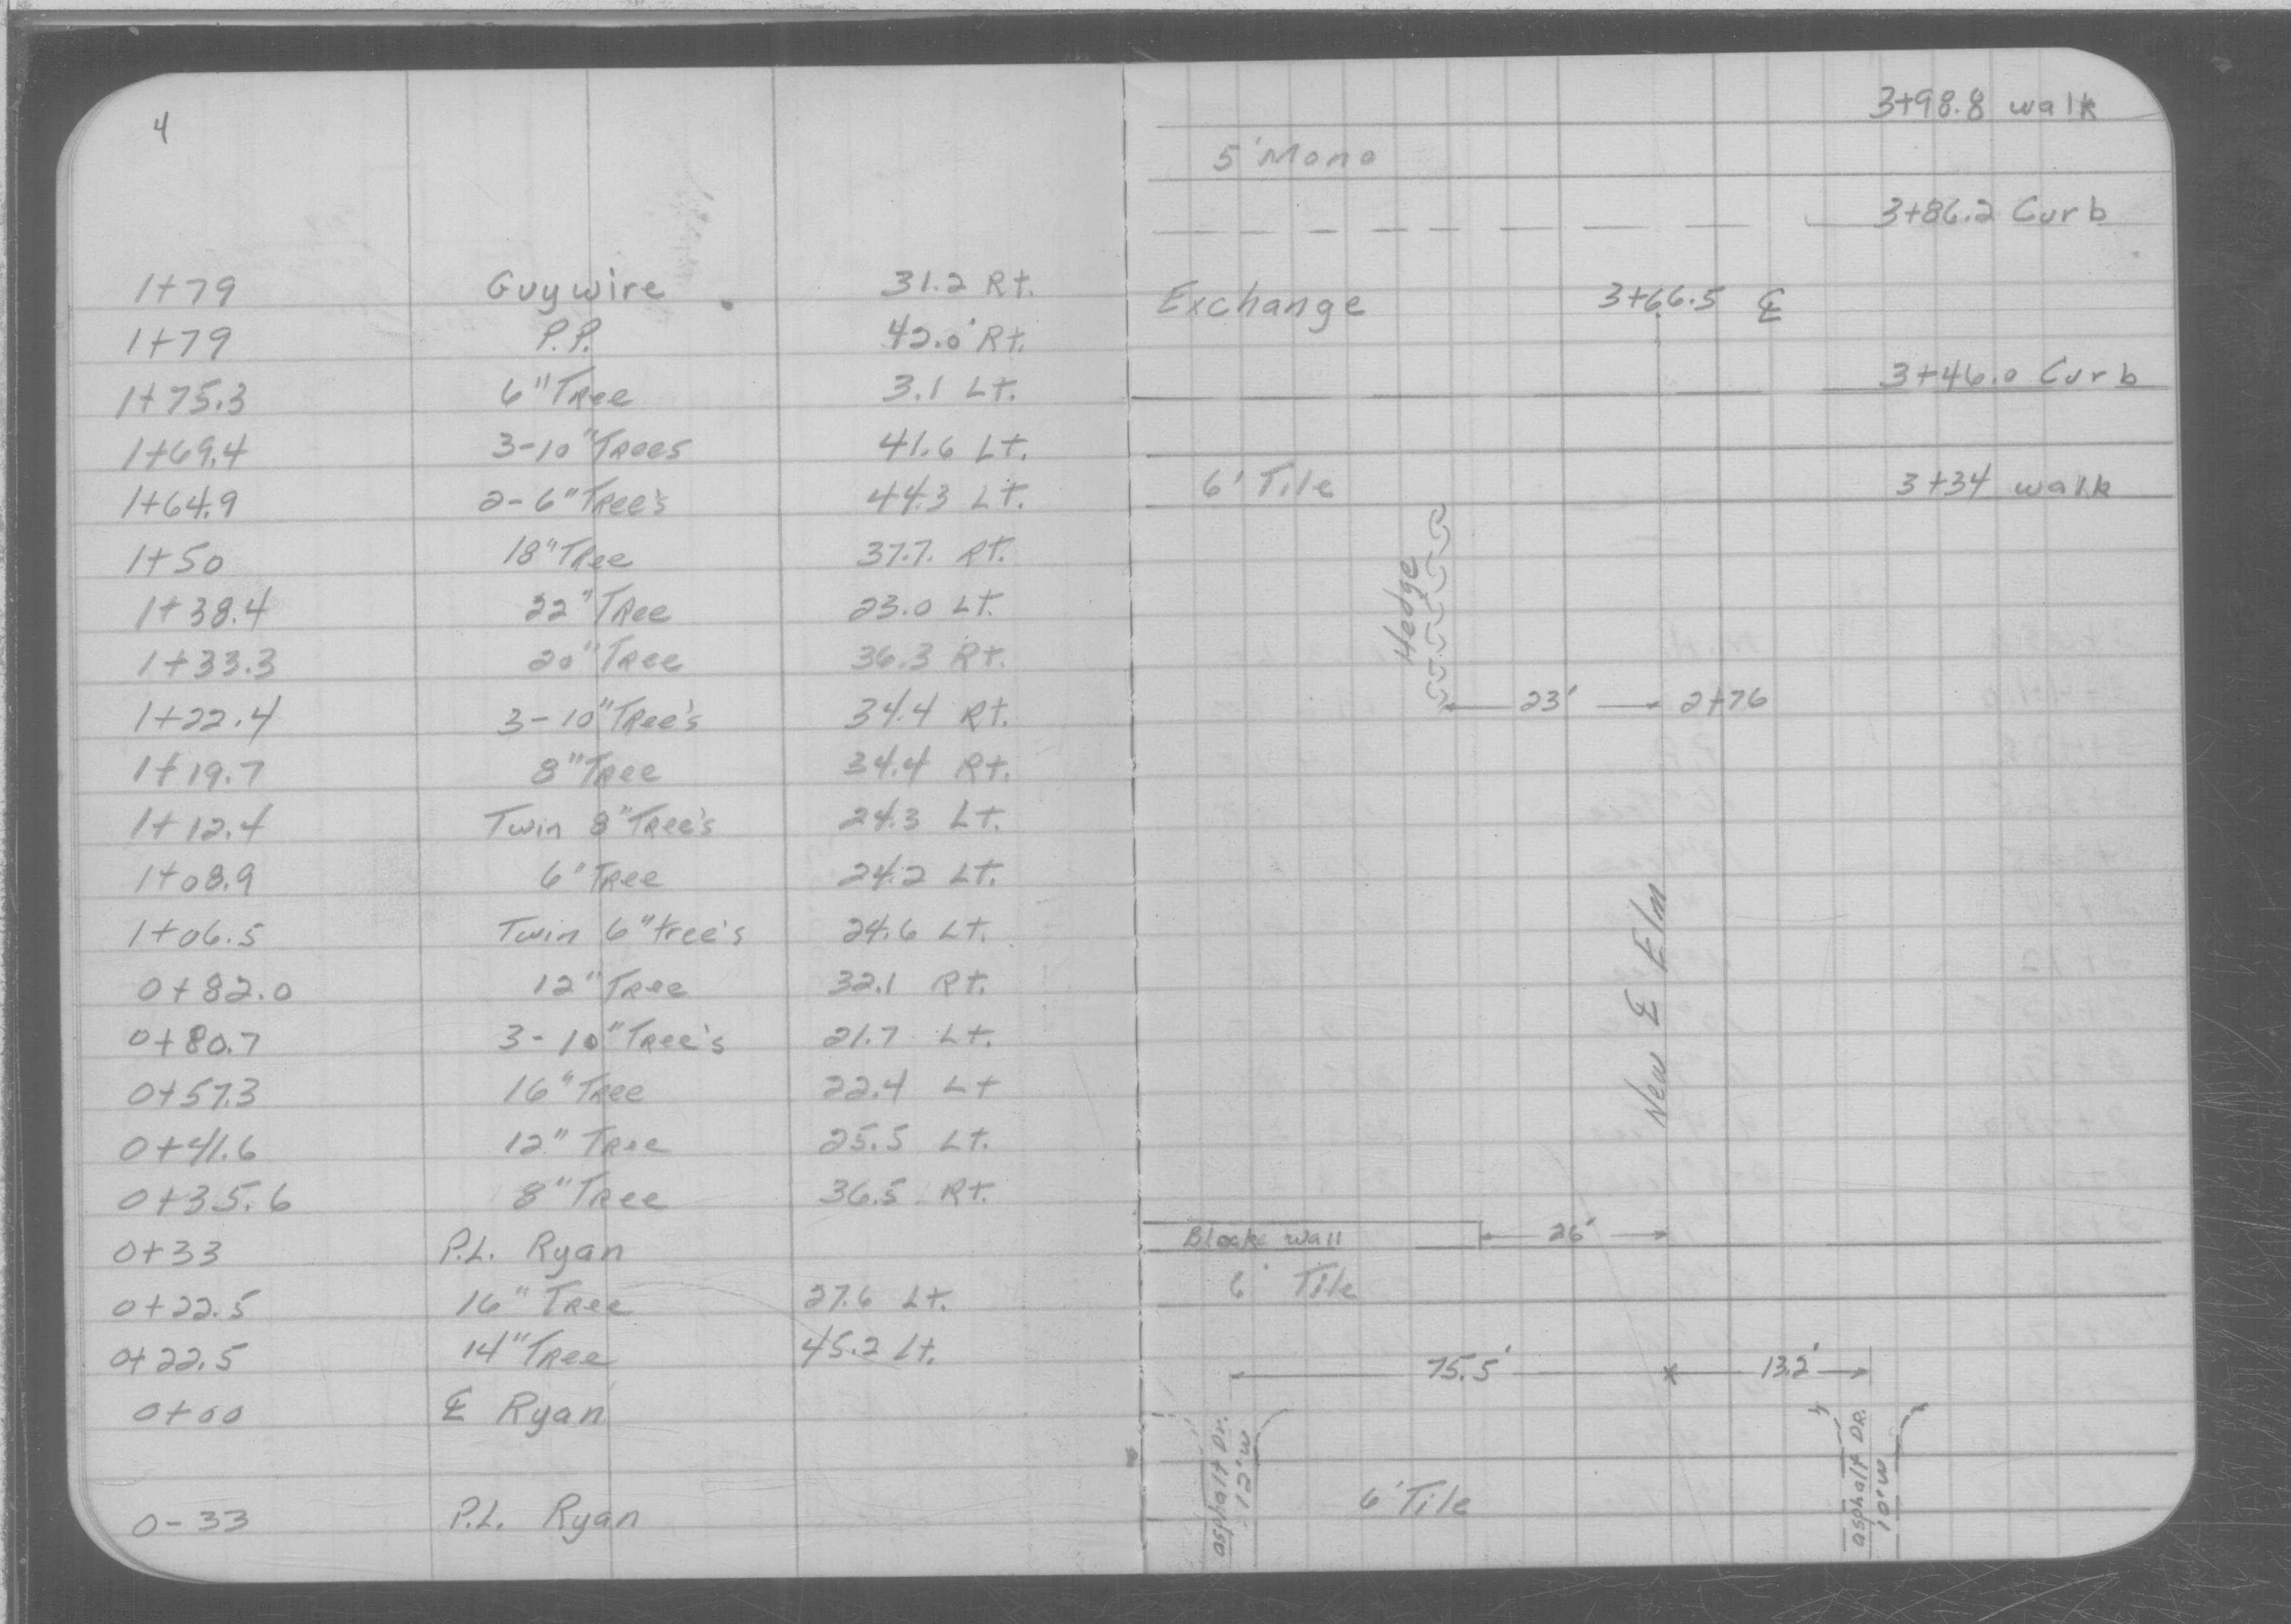 4
1+79 Guywire 31.2 Rt.
1+79 P.P. 42.0' Rt.
1+75.3 6" Tree 3.1 Lt.
1+69.4 3-10" Trees 41.6 Lt.
1+64.9 2-6" Tree's 44.3 Lt.
1+50 18" Tree 37.7. Rt.
1+38.4 22" Tree 23.0 Lt.
1+33.3 20" Tree 36.3 Rt.
1+22.4 3-10" Tree's 34.4 Rt.
1+19.7 8" Tree 34.4 Rt.
1+12.4 Twin 8" Tree's 24.3 Lt.
1+08.9 6" Tree 24.2 Lt.
1+06.5 Twin 6" tree's 24.6 Lt.
0+82.0 12" Tree 32.1 Rt.
0+80.7 3-10" Tree's 21.7 Lt.
0+57.3 16" Tree 22.4 Lt
0+41.6 12" Tree 25.5 Lt.
0+35.6 8" Tree 36.5 Rt.
0+33 P.L. Ryan
0+22.5 16" Tree 27.6 Lt.
0+22.5 14" Tree 45.2 Lt.
0+00 ℄ Ryan
0-33 P.L. Ryan
3+98.8 walk
5' Mono
3+86.2 Curb
Exchange 3+66.5 ℄
3+46.0 Curb
6' Tile 3+34 walk
Hedge
23' 2+76
New ℄ Elm
Block wall 26'
6' Tile
75.5' 13.2'
asphalt Dr.
12'W
6' Tile
asphalt DR.
10'W